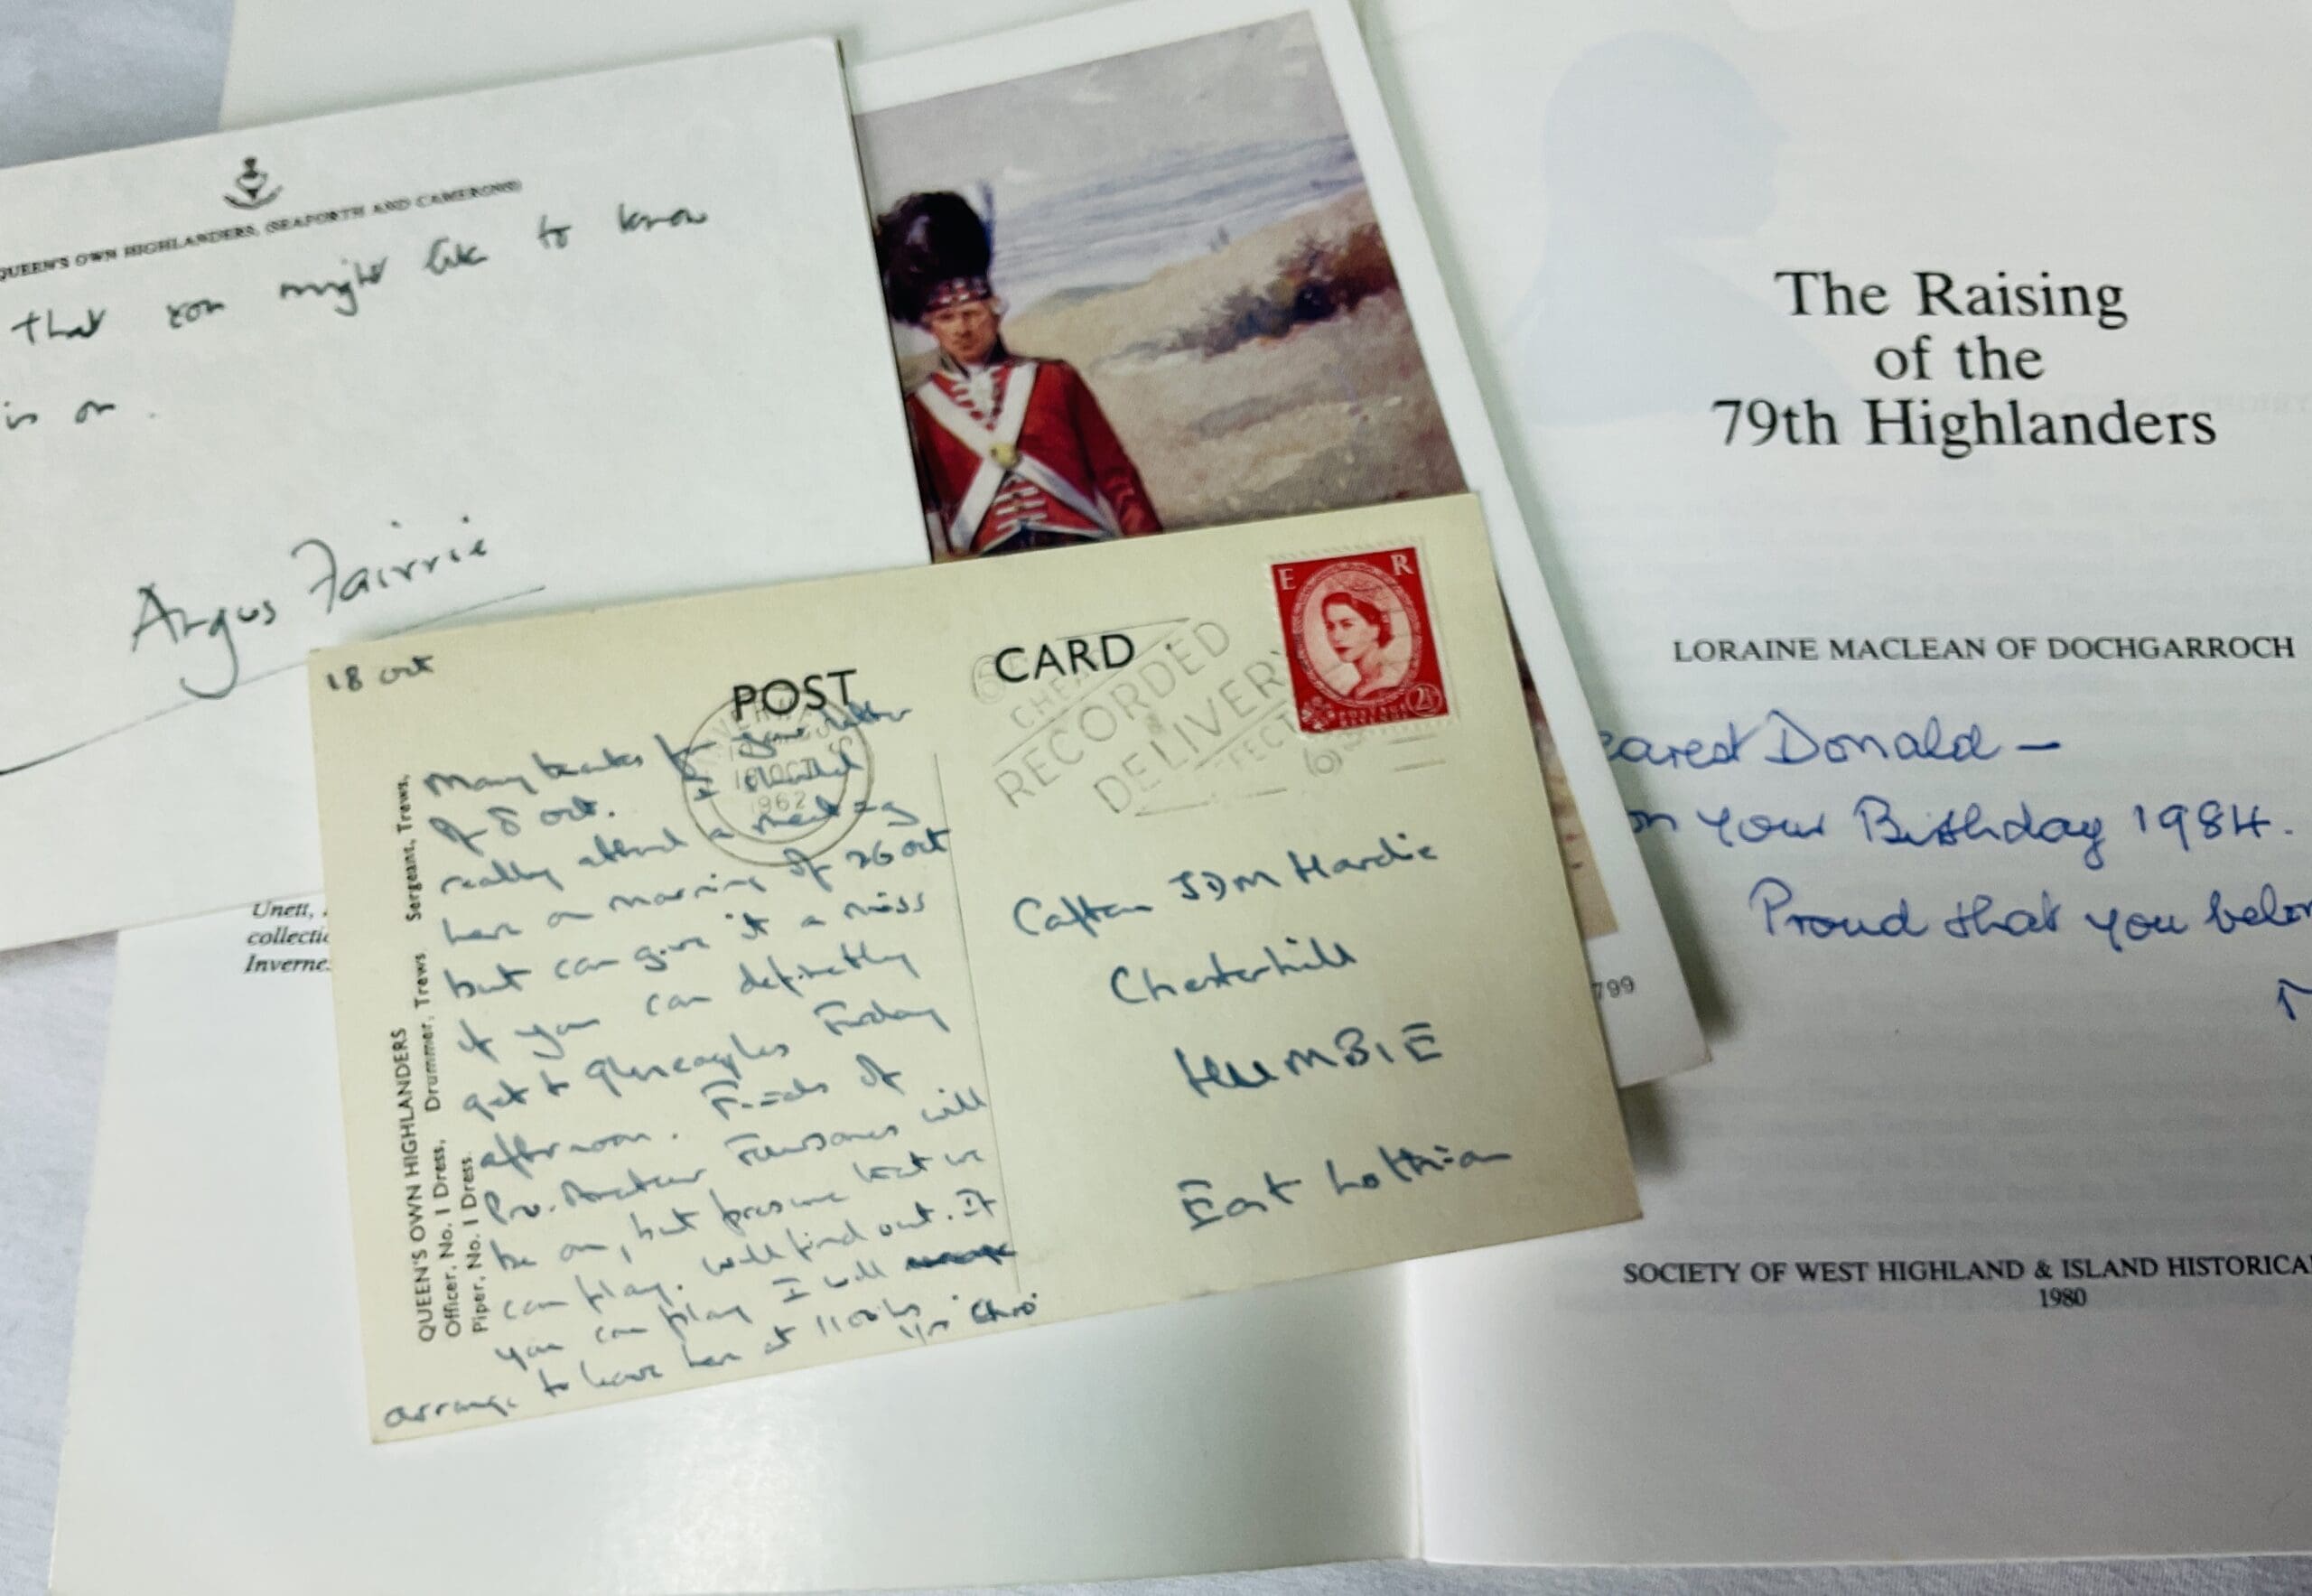 QUEEN'S OWN HIGHLANDERS, (SEAFORTH AND CAMERONS)
that you might like to know
is on.
Angus Fairrie
The Raising
of the
79th Highlanders
LORAINE MACLEAN OF DOCHGARROCH
earest Donald –
on your Birthday 1984.
Proud that you belon
SOCIETY OF WEST HIGHLAND & ISLAND HISTORICA
1980
799
Unett,
collectio
Inverne
POST CARD
18 Oct
Many thanks for your letter
of 8 Oct. I should
really attend a meeting
here on morning of 26 Oct
but can give it a miss
if you can definitely
get to Gleneagles Friday
afternoon. Finals of
Pro. Amateur Foursomes will
be on, but presume that we
can play. Will find out. If
you can play I will
arrange to leave here at 1100 hrs.
QUEEN'S OWN HIGHLANDERS
Officer, No. 1 Dress, Drummer, Trews Sergeant, Trews,
Piper, No. 1 Dress.
18 OCT
1962
RECORDED
DELIVERY
E R
2½
Captain JDM Hardie
Chesterhill
HUMBIE
East Lothian